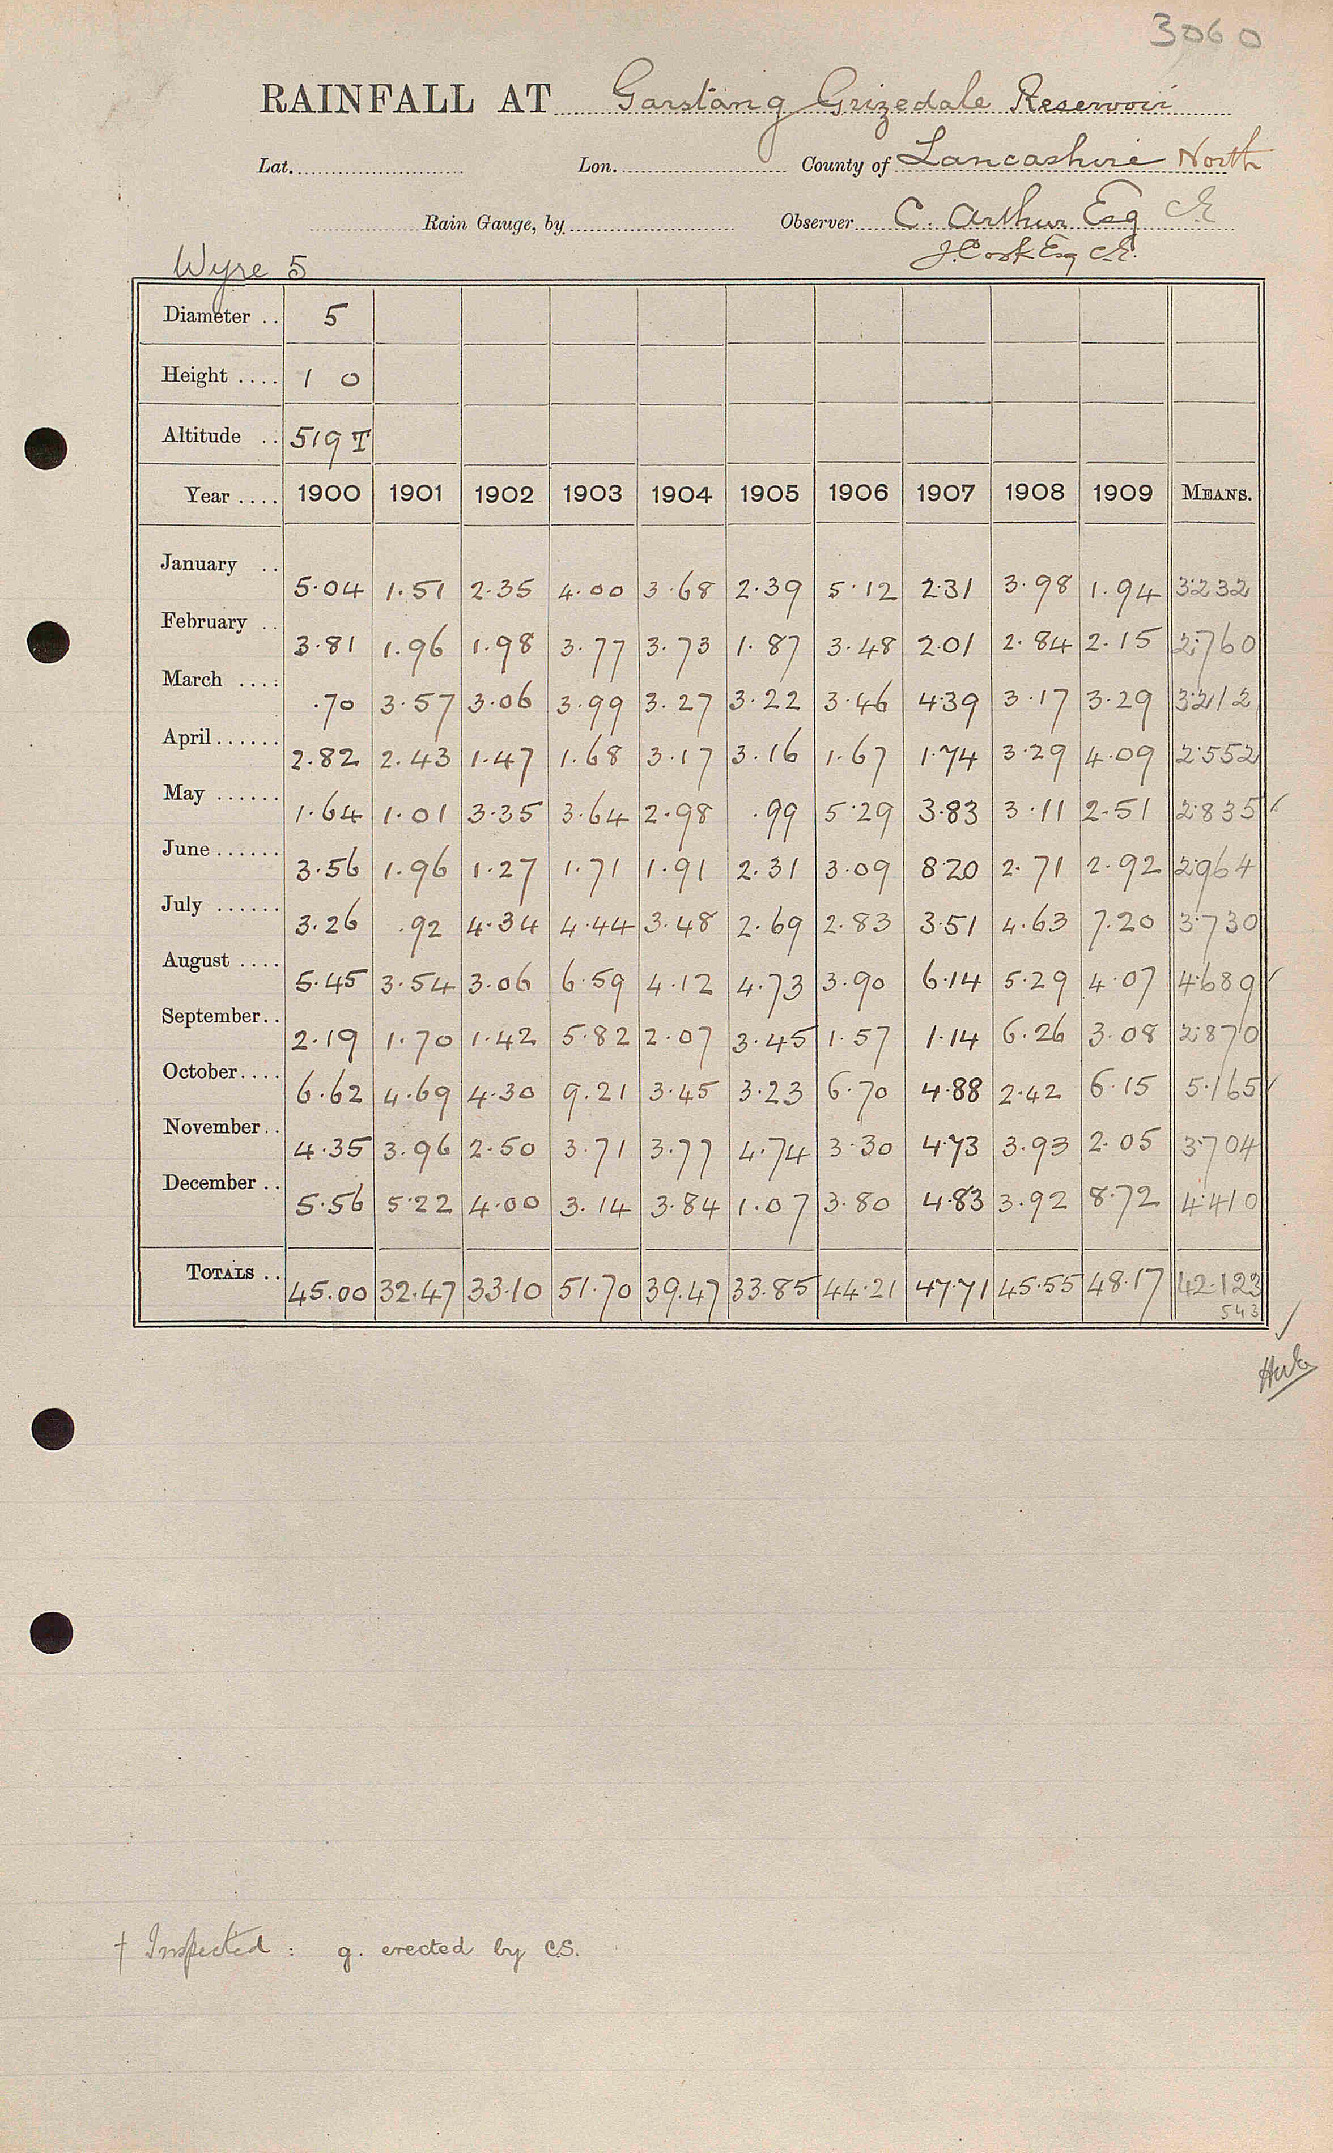 3060
RAINFALL AT Garstang Grizedale Reservoir
Lat. Lon. County of Lancashire North
Rain Gauge, by Observer C. Arthur Esq CE
J. Cook Esq CE.
Wyre 5
Diameter .. 5
Height .... 1 0
Altitude .. 519 T
Year .... 1900 1901 1902 1903 1904 1905 1906 1907 1908 1909 MEANS.
January .. 5.04 1.51 2.35 4.00 3.68 2.39 5.12 2.31 3.98 1.94 3.232
February .. 3.81 1.96 1.98 3.77 3.73 1.87 3.48 2.01 2.84 2.15 2.760
March .... .70 3.57 3.06 3.99 3.27 3.22 3.46 4.39 3.17 3.29 3.212
April ...... 2.82 2.43 1.47 1.68 3.17 3.16 1.67 1.74 3.29 4.09 2.552
May ...... 1.64 1.01 3.35 3.64 2.98 .99 5.29 3.83 3.11 2.51 2.835 ✓
June ...... 3.56 1.96 1.27 1.71 1.91 2.31 3.09 8.20 2.71 2.92 2.964
July ...... 3.26 .92 4.34 4.44 3.48 2.69 2.83 3.51 4.63 7.20 3.730
August .... 5.45 3.54 3.06 6.59 4.12 4.73 3.90 6.14 5.29 4.07 4.689 ✓
September .. 2.19 1.70 1.42 5.82 2.07 3.45 1.57 1.14 6.26 3.08 2.870
October .... 6.62 4.69 4.30 9.21 3.45 3.23 6.70 4.88 2.42 6.15 5.165 ✓
November .. 4.35 3.96 2.50 3.71 3.77 4.74 3.30 4.73 3.93 2.05 3.704
December .. 5.56 5.22 4.00 3.14 3.84 1.07 3.80 4.83 3.92 8.72 4.410
TOTALS .. 45.00 32.47 33.10 51.70 39.47 33.85 44.21 47.71 45.55 48.17 42.123
543 ✓
† Inspected : g. erected by C.S.